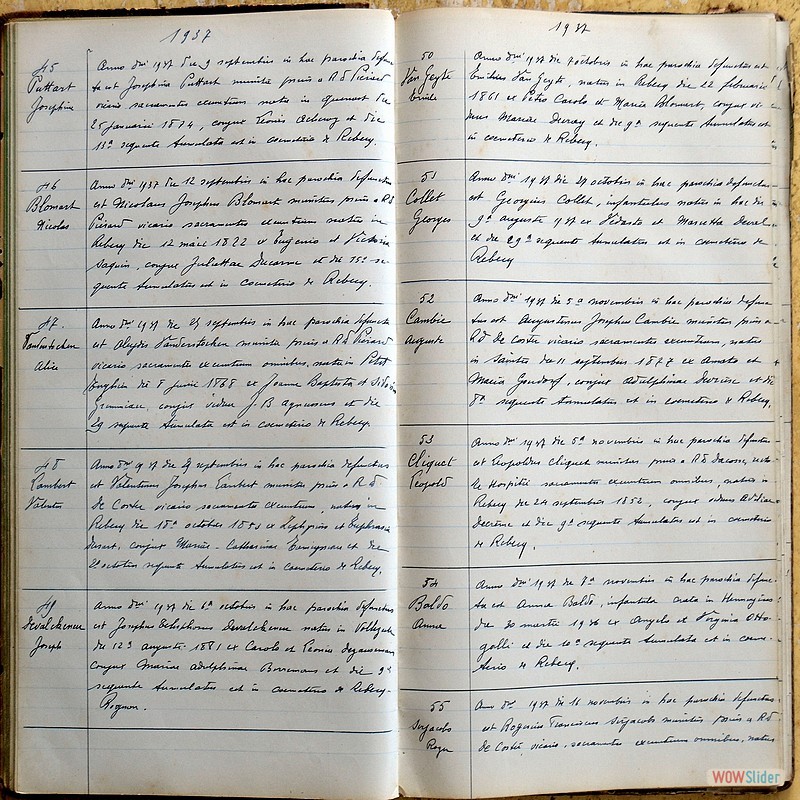 1937
45
Puttart
Josephine
Anno dni 1937 die 9 septembris in hac parochia defunc
ta est Josephina Puttart munita prius a Rd Pierard
vicario sacramentis exeuntium nata in Quenast die
25 januarii 1874, conjux Leonis et die
11a sequente tumulata est in coemeterio de Rebecq.
46
Blomart
Nicolas
Anno dni 1937 die 12 septembris in hac parochia defunctus
est Nicolaus Josephus Blomart munitus prius a Rd
Pierard vicario sacramentis exeuntium natus in
Rebecq die 12 maii 1822 ex Eugenio et Victoria
conjux Juliettae Ducarme et die 15a se
quente tumulatus est in coemeterio de Rebecq.
47.
Vanderstochen
Alice
Anno dni 1937 die 25 septembris in hac parochia defuncta
est Aleydis Vanderstocken munita prius a Rd Pierard
vicario sacramentis exeuntium omnibus, nata in Petit
Enghien die 8 junii 1868 ex Joanne Baptista et
conjux vidua J-B et die
29 sequente tumulata est in coemeterio de Rebecq.
48
Lambert
Valentin
Anno dni 9 37 die 29 septembris in hac parochia defunctus
est Valentinus Josephus Lambert munitus prius a Rd
De Coster vicario sacramentis exeuntium, natus in
Rebecq die 18a octobris ex Zephyrino et Euphrasia
conjux Mariae-Catharinae et die
2 octobris sequente tumulatus est in coemeterio de Rebecq.
49
Devalckeneer
Joseph
Anno dni 1937 die 6a octobris in hac parochia defunctus
est Josephus Delsphorus Devalckeneer natus in
die 123 augusti 1881 ex Carolo et Leonia
conjux Mariae Adelphinae Borremans et die 9a
sequente tumulatus est in coemeterio de Rebecq-
Rognon.
1937
50
Van Geyte
Emile
Anno dni 1937 die 7 octobris in hac parochia defunctus est
Emilius Van Geyte, natus in Rebecq die 22 februarii
1861 ex Petro Carolo et Maria Blomart, conjux vi-
duus Mariae Decray et die 9a sequente tumulatus est
in coemeterio de Rebecq.
51
Collet
Georges
Anno dni 1937 die 27 octobris in hac parochia defunctus
est Georgius Collet, infantulus natus in hac die
9a augusti 1937 ex Vedasto et Marcella
et die 29a sequente tumulatus est in coemeterio de
Rebecq
52
Cambie
Auguste
Anno dni 1937 die 5a novembris in hac parochia defunc
tus est Augustinus Josephus Cambie munitus prius a
Rd De Coster vicario sacramentis exeuntium, natus
in Saintes die 11 septembris 1877 ex Amato et
Maria conjux Adelphinae et die
8a sequente tumulatus est in coemeterio de Rebecq.
53
Cliquet
Leopold
Anno dni 1937 die 6a novembris in hac parochia defunctus
est Leopoldus Cliquet munitus prius a Rd Dacosse,
le Hospitii sacramentis exeuntium omnibus, natus in
Rebecq die 24 septembris 1852, conjux viduus
et die 9a sequente tumulatus est in coemeterio
de Rebecq.
54
Boldo
Anna
Anno dni 1937 die 8a novembris in hac parochia defunc
ta est Anna Boldo, infantula orata in Hennuyères
die 30 martii 1936 ex Angelo et Virginia Otto-
golli et die 10a sequente tumulata est in coeme-
terio de Rebecq.
55
Serjacobs
Roger
Anno dni 1937 die 16 novembris in hac parochia defunctus
est Rogerius Franciscus Serjacobs munitus prius a Rd
De Coster, vicario, sacramentis exeuntium omnibus, natus
WOWSlider